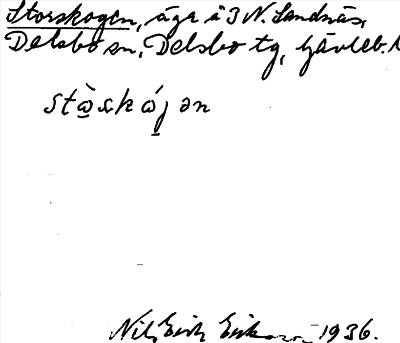 Storskogen, äga å 3 N. Sandnäs,
Delsbo sn, Delsbo tg, Gävleb. l
stɷ̀skɷ́jən
Nils Erik Erikson 1936.